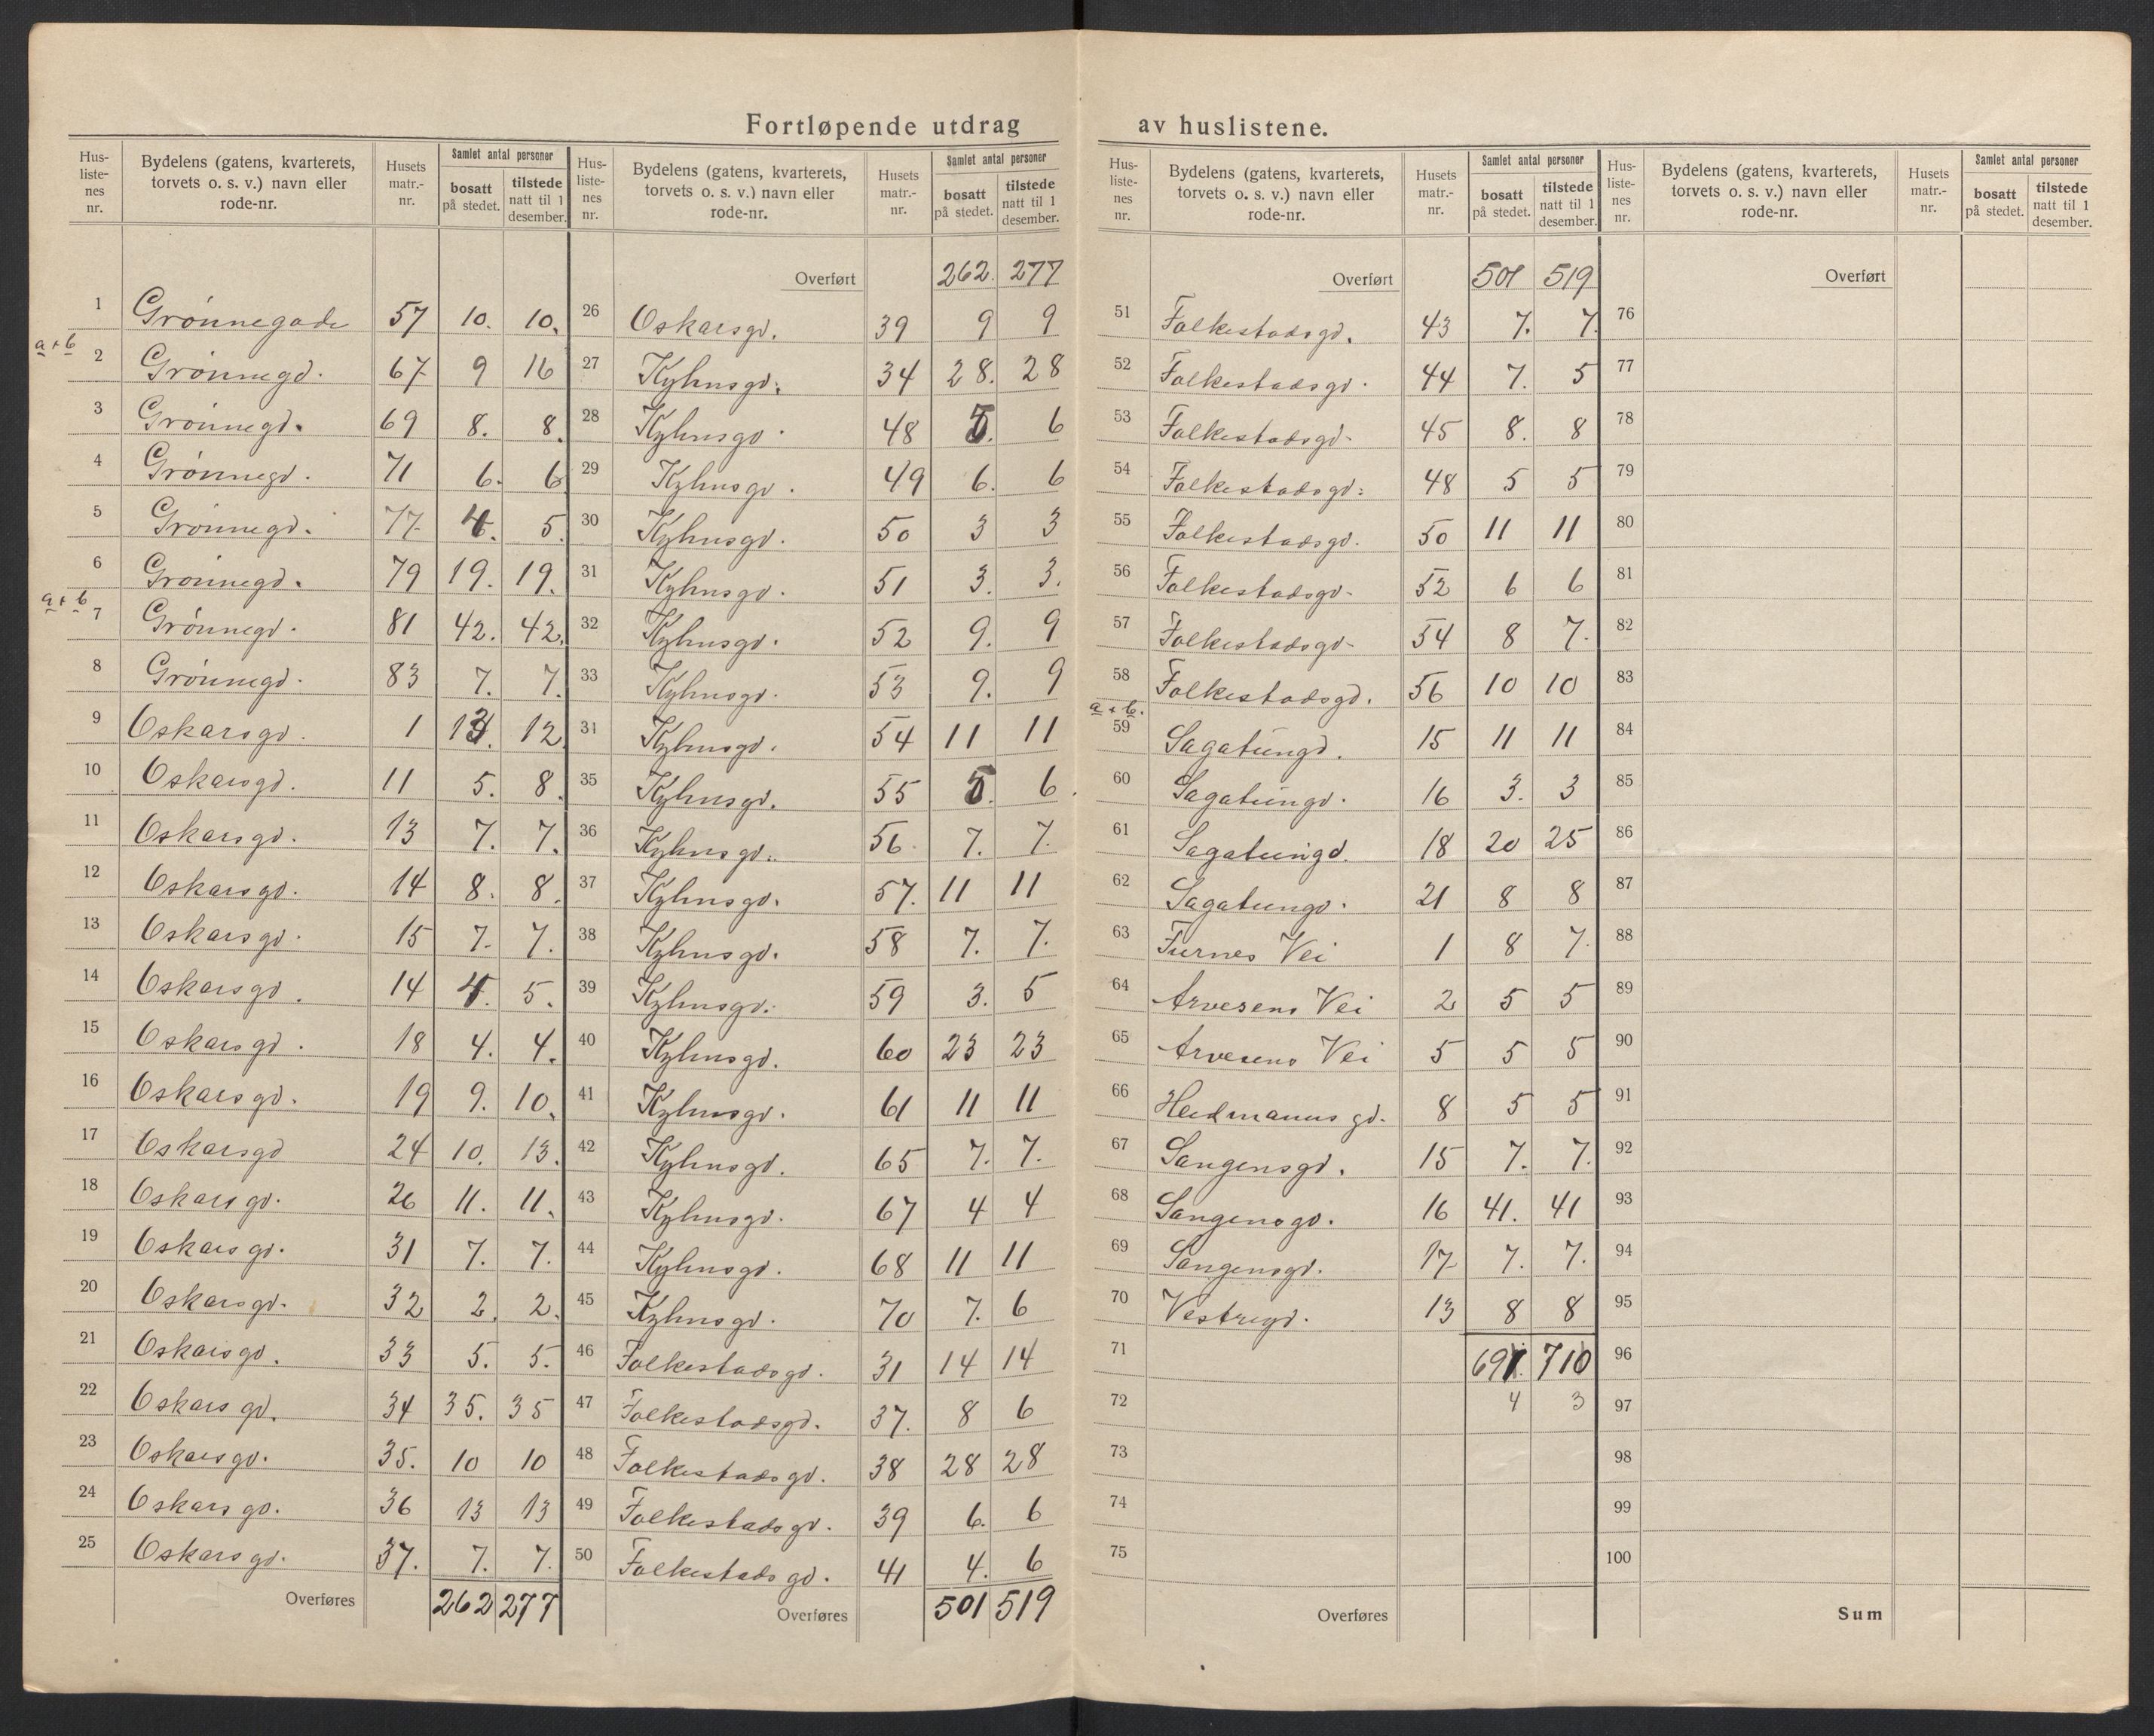 Fortløpende utdrag av huslistene.
Hus-listenes nr. Bydelens (gatens, kvarterets, torvets o. s. v.) navn eller rode-nr. Husets matr.-nr. Samlet antal personer bosatt på stedet. tilstede natt til 1 desember.
1 Grønnegade 57 10. 10.
a + b
2 Grønnegd. 67 9 16
3 Grønnegd. 69 8. 8.
4 Grønnegd. 71 6. 6
5 Grønnegd. 77 4. 5.
6 Grønnegd. 79 19. 19.
a + b
7 Grønnegd. 81 42. 42.
8 Grønnegd. 83 7. 7.
9 Oskarsgd. 1 13. 12.
10 Oskarsgd. 11 5. 8.
11 Oskarsgd. 13 7. 7.
12 Oskarsgd. 14 8. 8.
13 Oskarsgd. 15 7. 7.
14 Oskarsgd. 14 4. 5.
15 Oskarsgd. 18 4. 4.
16 Oskarsgd. 19 9. 10.
17 Oskarsgd 24 10. 13.
18 Oskarsgd. 26 11. 11.
19 Oskarsgd. 31 7. 7.
20 Oskarsgd. 32 2. 2.
21 Oskarsgd. 33 5. 5.
22 Oskarsgd. 34 35. 35
23 Oskarsgd. 35. 10 10
24 Oskarsgd. 36 13 13
25 Oskarsgd. 37. 7. 7.
Overføres 262 277
Hus-listenes nr. Bydelens (gatens, kvarterets, torvets o. s. v.) navn eller rode-nr. Husets matr.-nr. Samlet antal personer bosatt på stedet. tilstede natt til 1 desember.
Overført 262. 277
26 Oskarsgd. 39 9 9
27 Kyhnsgd. 34 28. 28
28 Kyhnsgd. 48 5. 6
29 Kyhnsgd. 49 6. 6
30 Kyhnsgd. 50 3 3
31 Kyhnsgd. 51 3. 3.
32 Kyhnsgd. 52 9. 9
33 Kyhnsgd. 53 9. 9
31 Kyhnsgd. 54 11 11
35 Kyhnsgd. 55 5. 6
36 Kyhnsgd. 56 7. 7.
37 Kyhnsgd. 57. 11 11
38 Kyhnsgd. 58 7. 7.
39 Kyhnsgd. 59 3. 5
40 Kyhnsgd. 60 23 23
41 Kyhnsgd. 61 11 11
42 Kyhnsgd. 65 7. 7.
43 Kyhnsgd. 67 4 4
44 Kyhnsgd. 68 11 11
45 Kyhnsgd. 70 7. 6
46 Folkestadsgd. 31 14 14
47 Folkestadsgd. 37. 8 6
48 Folkestadsgd. 38 28 28
49 Folkestadsgd. 39 6. 6
50 Folkestadsgd. 41 4. 6
Overføres 501 519
Hus-listenes nr. Bydelens (gatens, kvarterets, torvets o. s. v.) navn eller rode-nr. Husets matr.-nr. Samlet antal personer bosatt på stedet. tilstede natt til 1 desember.
Overført 501 519
51 Folkestadsgd. 43 7. 7.
52 Folkestadsgd. 44 7. 5
53 Folkestadsgd. 45 8. 8
54 Folkestadsgd. 48 5 5
55 Folkestadsgd. 50 11 11
56 Folkestadsgd. 52 6 6
57 Folkestadsgd. 54 8 7.
58 Folkestadsgd. 56 10 10
a + b.
59 Sagatungd. 15 11 11
60 Sagatungd. 16 3. 3
61 Sagatungd. 18 20 25
62 Sagatungd. 21 8 8
63 Furnes Vei 1 8 7.
64 Arvesens Vei 2 5 5
65 Arvesens Vei 5 5 5
66 Hedmanns gd. 8 5 5
67 Sangensgd. 15 7. 7.
68 Sangensgd. 16 41. 41
69 Sangensgd. 17 7. 7.
70 Vestregd. 13 8 8
71 691. 710
72 4 3
73
74
75
Overføres
Hus-listenes nr. Bydelens (gatens, kvarterets, torvets o. s. v.) navn eller rode-nr. Husets matr.-nr. Samlet antal personer bosatt på stedet. tilstede natt til 1 desember.
Overført
76
77
78
79
80
81
82
83
84
85
86
87
88
89
90
91
92
93
94
95
96
97
98
99
100
Sum